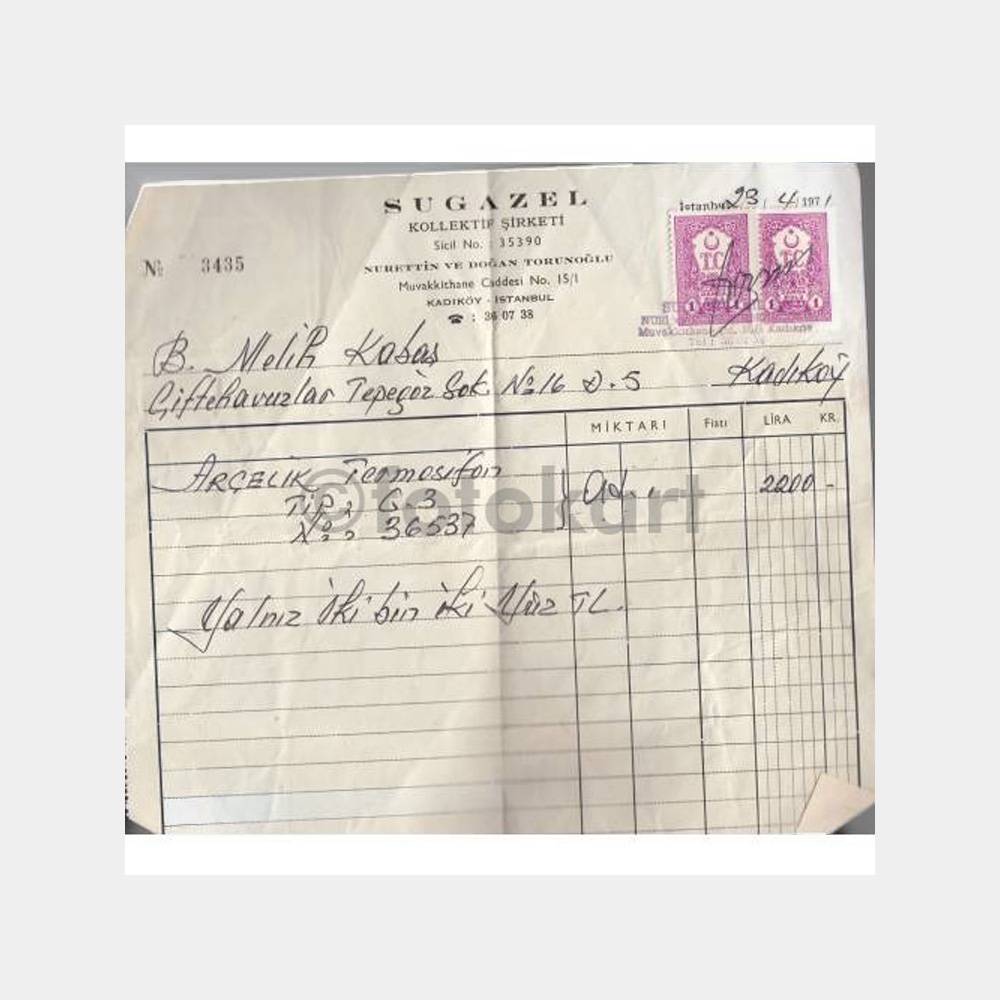 SUGAZEL
KOLLEKTİF ŞİRKETİ
Sicil No. : 35390
NURETTİN VE DOĞAN TORUNOĞLU
Muvakkithane Caddesi No. 15/1
KADIKÖY - İSTANBUL
☎ : 36 07 38
İstanbul 23 / 4 / 1971
№ 3435
T.C
1 1
T.C
1 1
B. Melih Kabaş
Çiftehavuzlar Tepegöz Sok. No 16 D.5 Kadıköy
MİKTARI Fiatı LİRA KR.
ARÇELİK Termosifon
Tip : G.3 1 ad. 2200 -
No : 36537
©fotokart
Yalnız iki bin iki Yüz TL.